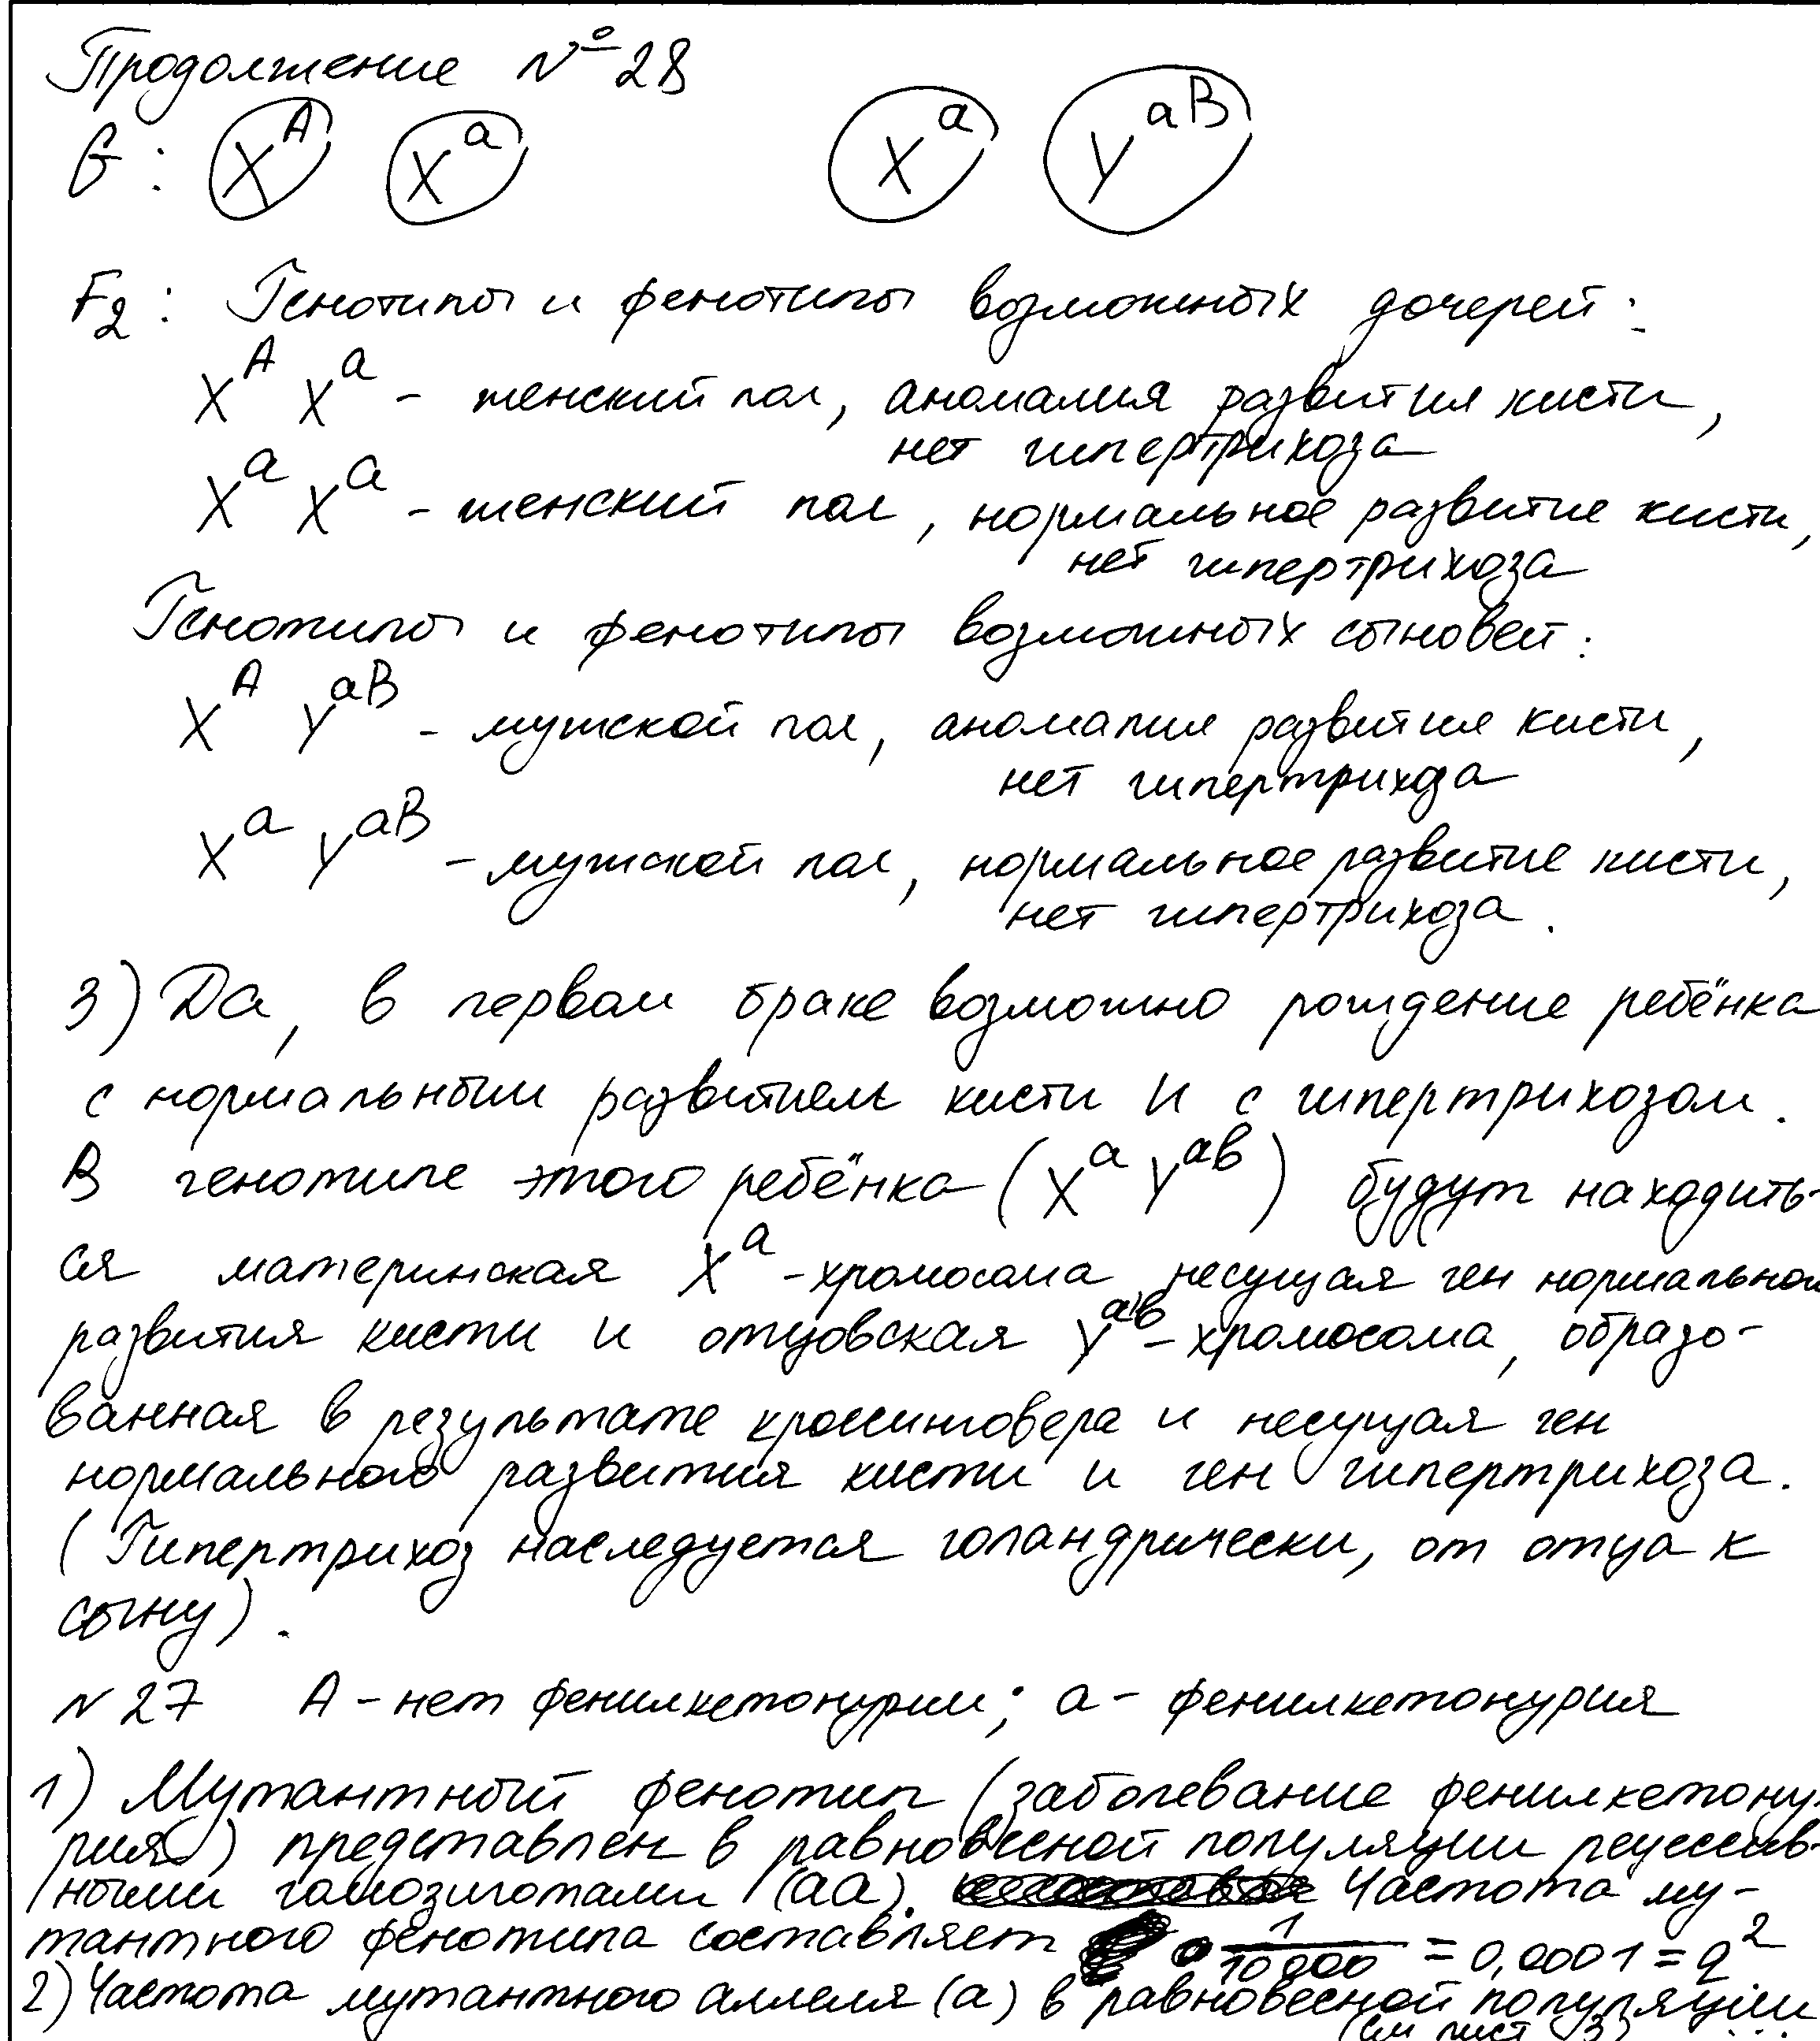 Продолжение №28
G: X^A X^a X^a Y^aB
F2: Генотипы и фенотипы возможных дочерей:
X^A X^a - женский пол, аномалия развития кисти,
нет гипертрихоза
X^a X^a - женский пол, нормальное развитие кисти,
нет гипертрихоза
Генотипы и фенотипы возможных сыновей:
X^A Y^aB - мужской пол, аномалия развития кисти,
нет гипертрихоза
X^a Y^aB - мужской пол, нормальное развитие кисти,
нет гипертрихоза.
3) Да, в первом браке возможно рождение ребёнка
с нормальным развитием кисти и с гипертрихозом.
В генотипе этого ребёнка (X^a Y^ab) будут находить-
ся материнская X^a-хромосома несущая ген нормального
развития кисти и отцовская Y^ab-хромосома, образо-
ванная в результате кроссинговера и несущая ген
нормального развития кисти и ген гипертрихоза.
(Гипертрихоз наследуется голандрически, от отца к
сыну).
№27 А - нет фенилкетонурии; а - фенилкетонурия
1) Мутантный фенотип (заболевание фенилкетону-
рия) представлен в равновесной популяции рецессив-
ными гомозиготами (аа). Частота му-
тантного фенотипа составляет 1/10000 = 0,0001 = q^2
2) Частота мутантного аллеля (а) в равновесной популяции
(см лист 3)